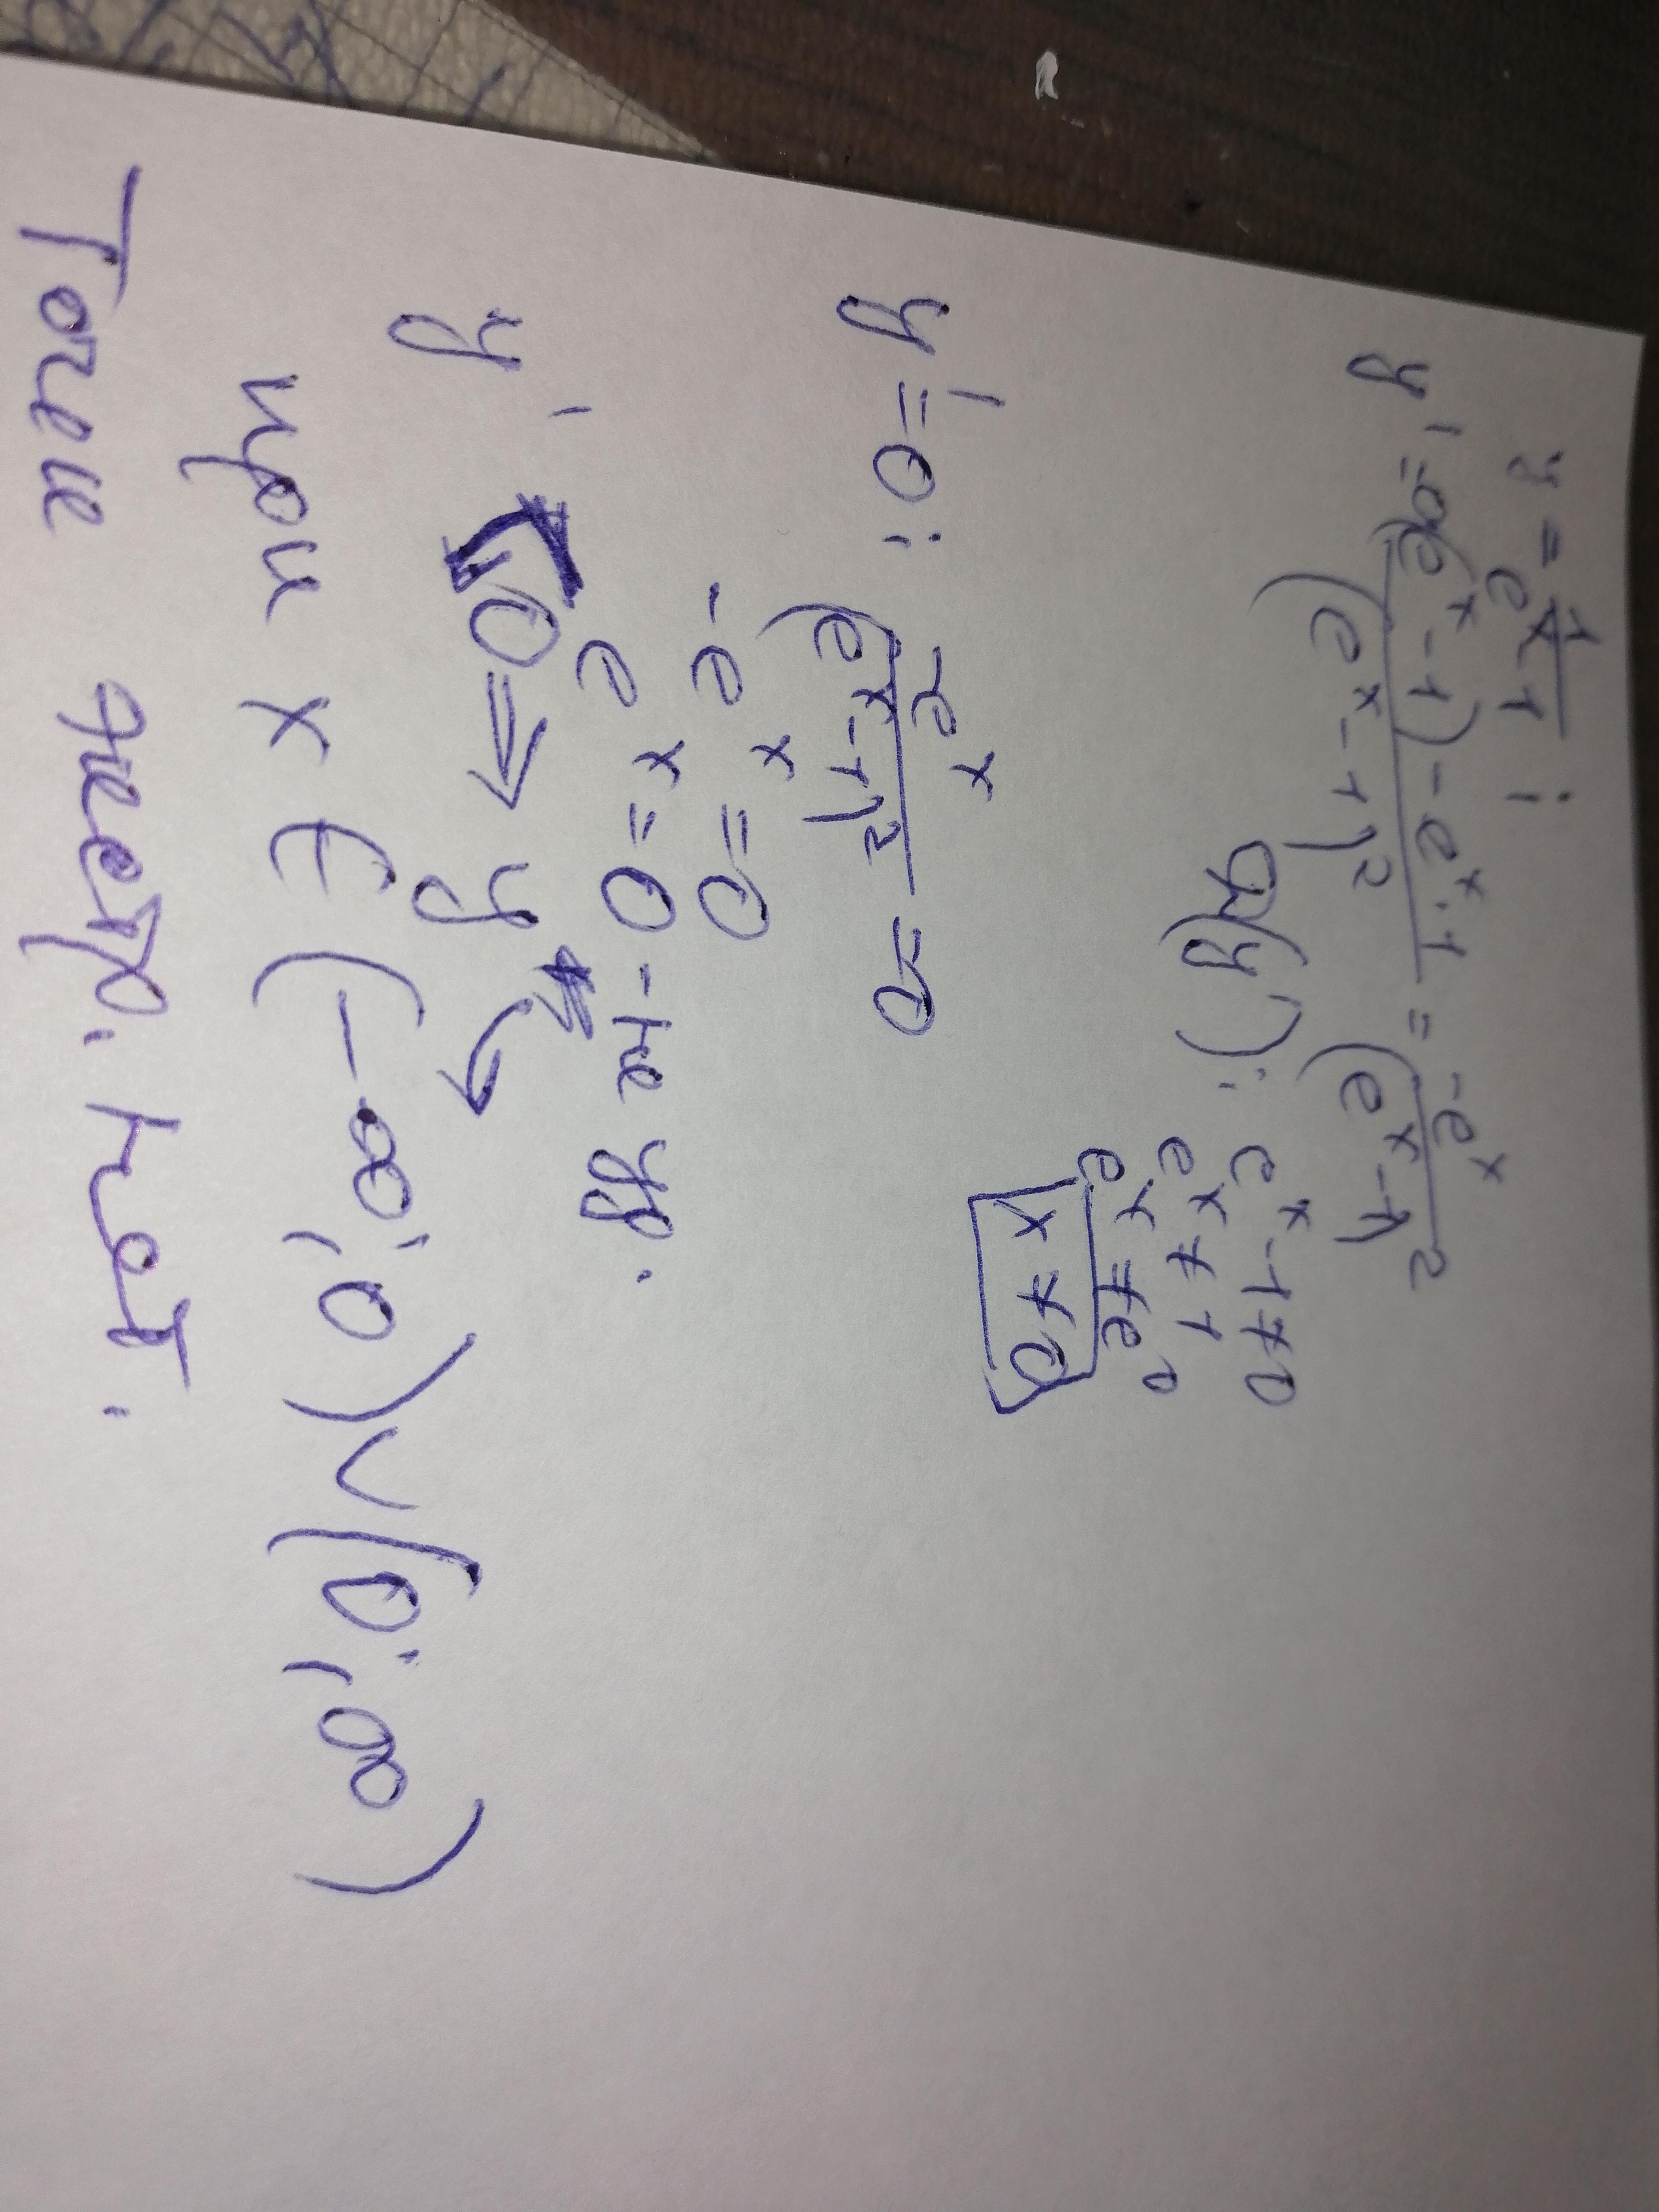 y = 1/(e^x-1) ;
y' = 0(e^x-1)-e^x·1/(e^x-1)^2 = -e^x/(e^x-1)^2
D(y'): e^x-1≠0
e^x≠1
e^x≠e^0
x≠0
y'=0: -e^x/(e^x-1)^2 =0
-e^x=0
e^x=0-не уд.
y' < 0 ⇒ y ↘
при x ∈ (-∞;0)∪(0;∞)
Точек экстр. нет.